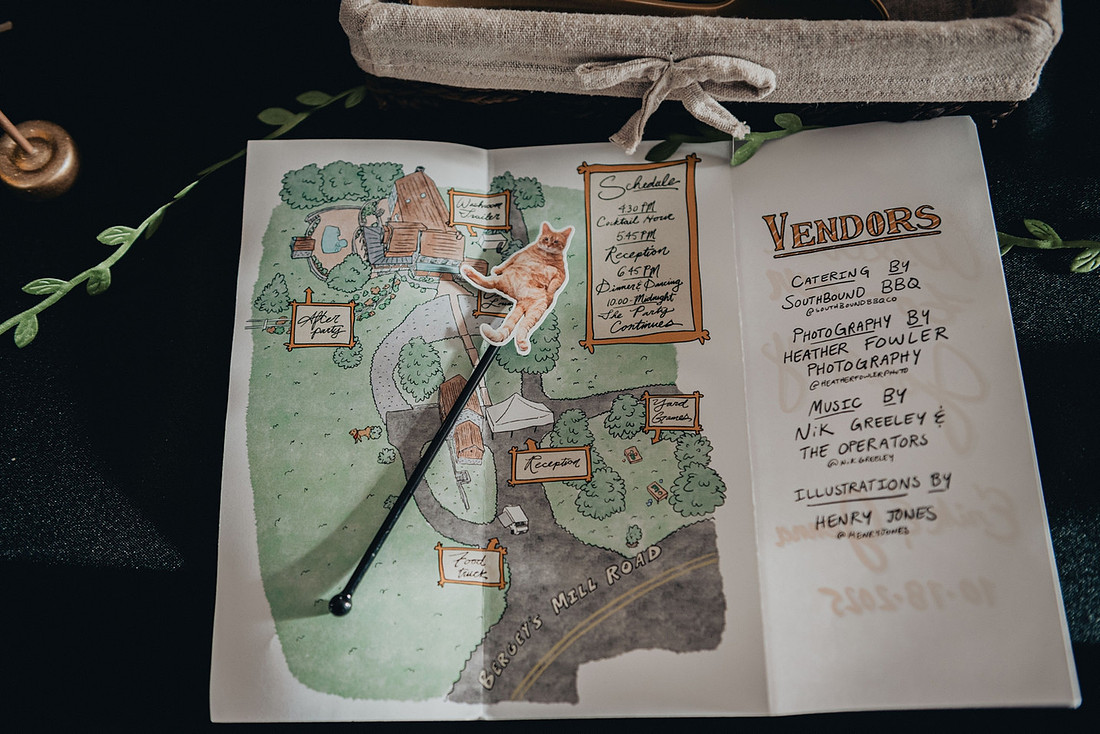 Washroom
Trailer
After
party
Schedule
4:30 PM
Cocktail Hour
5:45 PM
Reception
6:45 PM
Dinner & Dancing
10:00-Midnight
The Party
Continues
Yard
Games
Reception
Food
truck
BERGEY'S MILL ROAD
VENDORS
CATERING BY
SOUTHBOUND BBQ
@SOUTHBOUNDBBQCO
PHOTOGRAPHY BY
HEATHER FOWLER
PHOTOGRAPHY
@HEATHERFOWLERPHOTO
MUSIC BY
NIK GREELEY &
THE OPERATORS
@NIKGREELEY
ILLUSTRATIONS BY
HENRY JONES
@HENRYJONES
10-18-2025